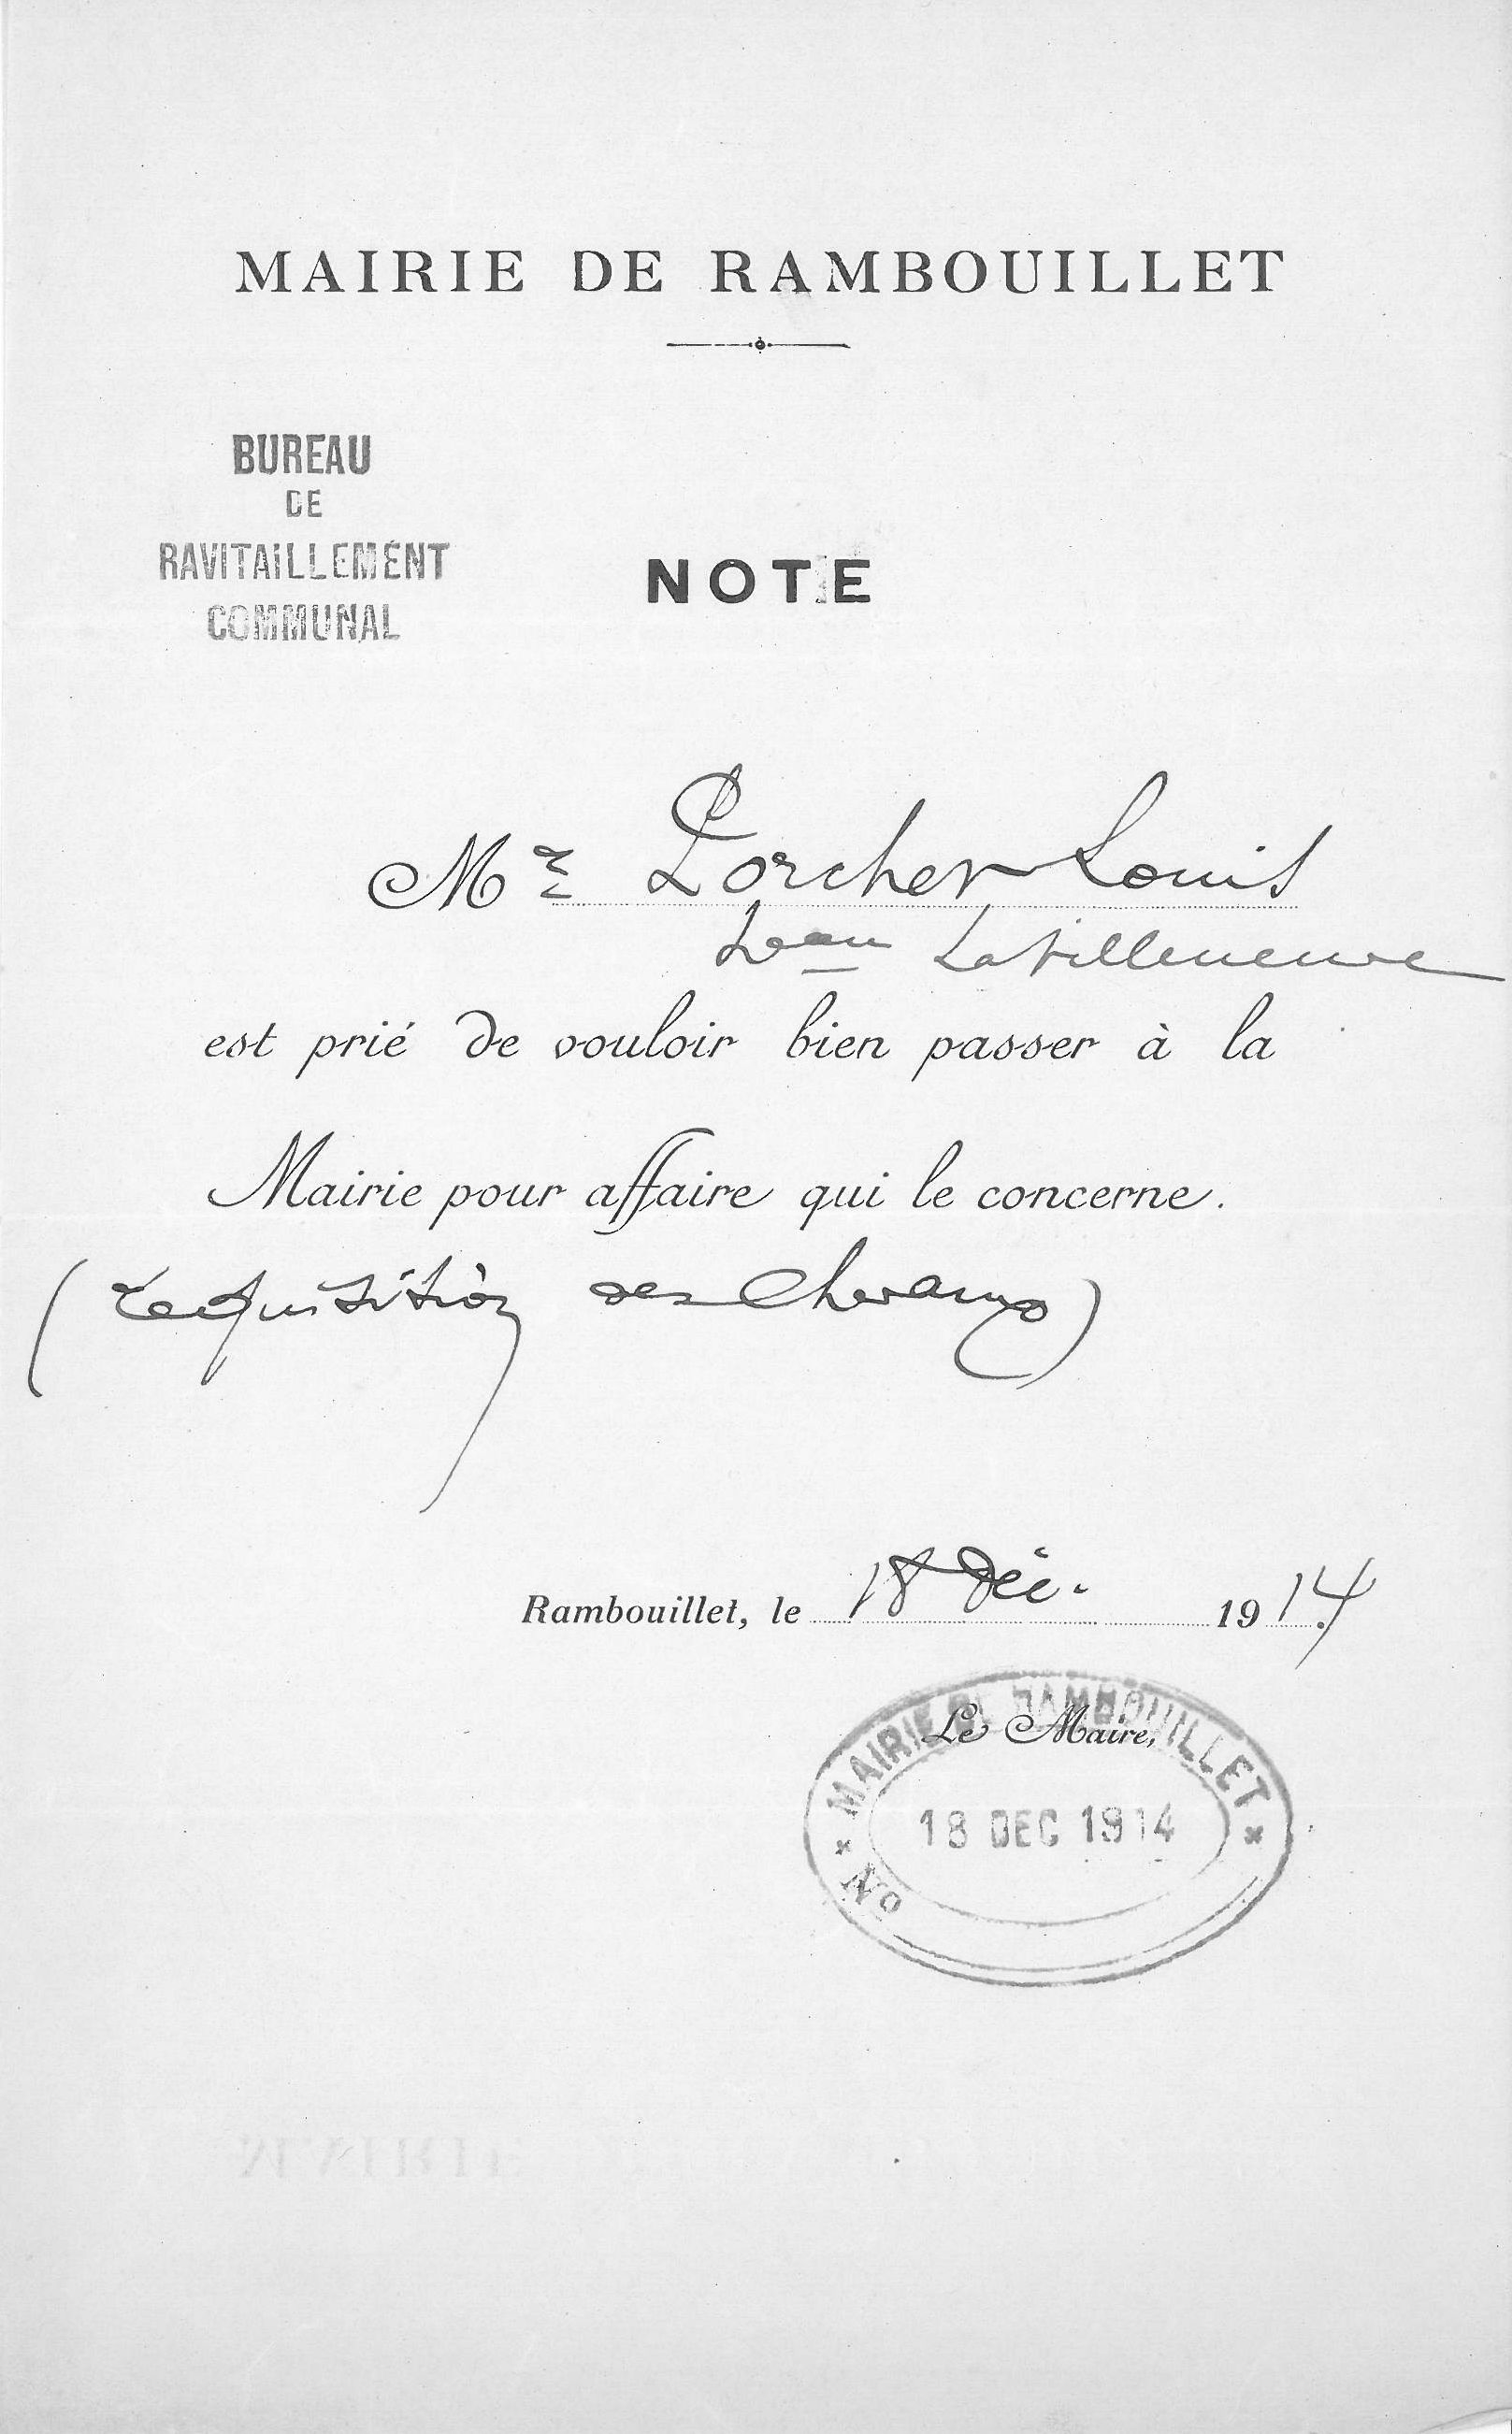 MAIRIE DE RAMBOUILLET
BUREAU
DE
RAVITAILLEMENT
COMMUNAL
NOTE
Mr Porcher Louis
Lavilleneuve
est prié de vouloir bien passer à la
Mairie pour affaire qui le concerne.
(requisition des Chevaux)
Rambouillet, le 18 Déc. 1914.
Le Maire,
MAIRIE DE RAMBOUILLET
18 DEC 1914
No